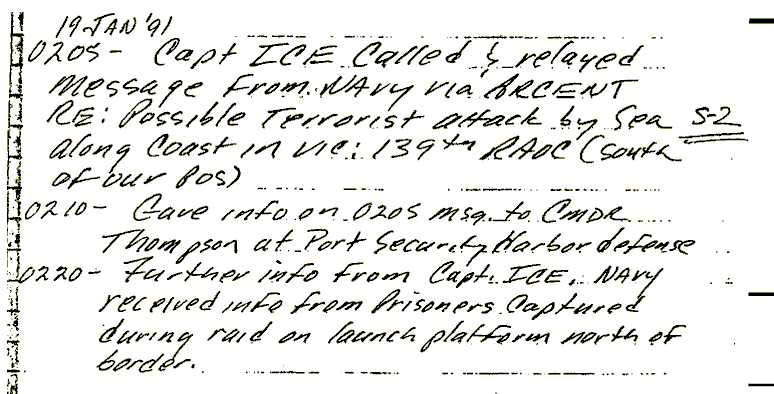 19 JAN '91
0205- Capt ICE Called & relayed
Message From NAvy via ARCENT
RE: Possible Terrorist attack by Sea S-2
along Coast in vic: 139th RAOC (South
of our Pos)
0210- Gave info on 0205 msg. to CMDR
Thompson at Port Security, Harbor defense
0220- Further info From Capt. ICE, NAVY
received info from Prisoners Captured
during raid on launch platform north of
border.